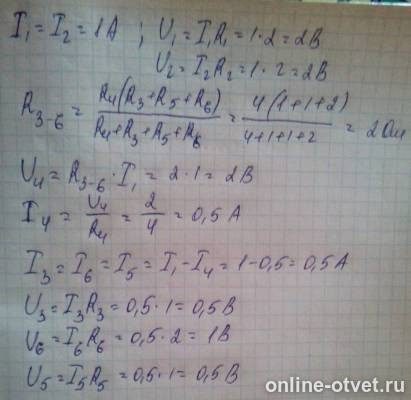 I₁ = I₂ = 1A ; U₁ = I₁R₁ = 1·2 = 2В
U₂ = I₂R₂ = 1·2 = 2В
R₃₋₆ = R₄(R₃+R₅+R₆)/R₄+R₃+R₅+R₆ = 4(1+1+2)/4+1+1+2 = 2Ом
U₄ = R₃₋₆ · I₁ = 2·1 = 2В
I₄ = U₄/R₄ = 2/4 = 0,5 A
I₃ = I₆ = I₅ = I₁ - I₄ = 1-0,5 = 0,5A
U₃ = I₃R₃ = 0,5·1 = 0,5В
U₆ = I₆R₆ = 0,5·2 = 1В
U₅ = I₅R₅ = 0,5·1 = 0,5В
online-otvet.ru